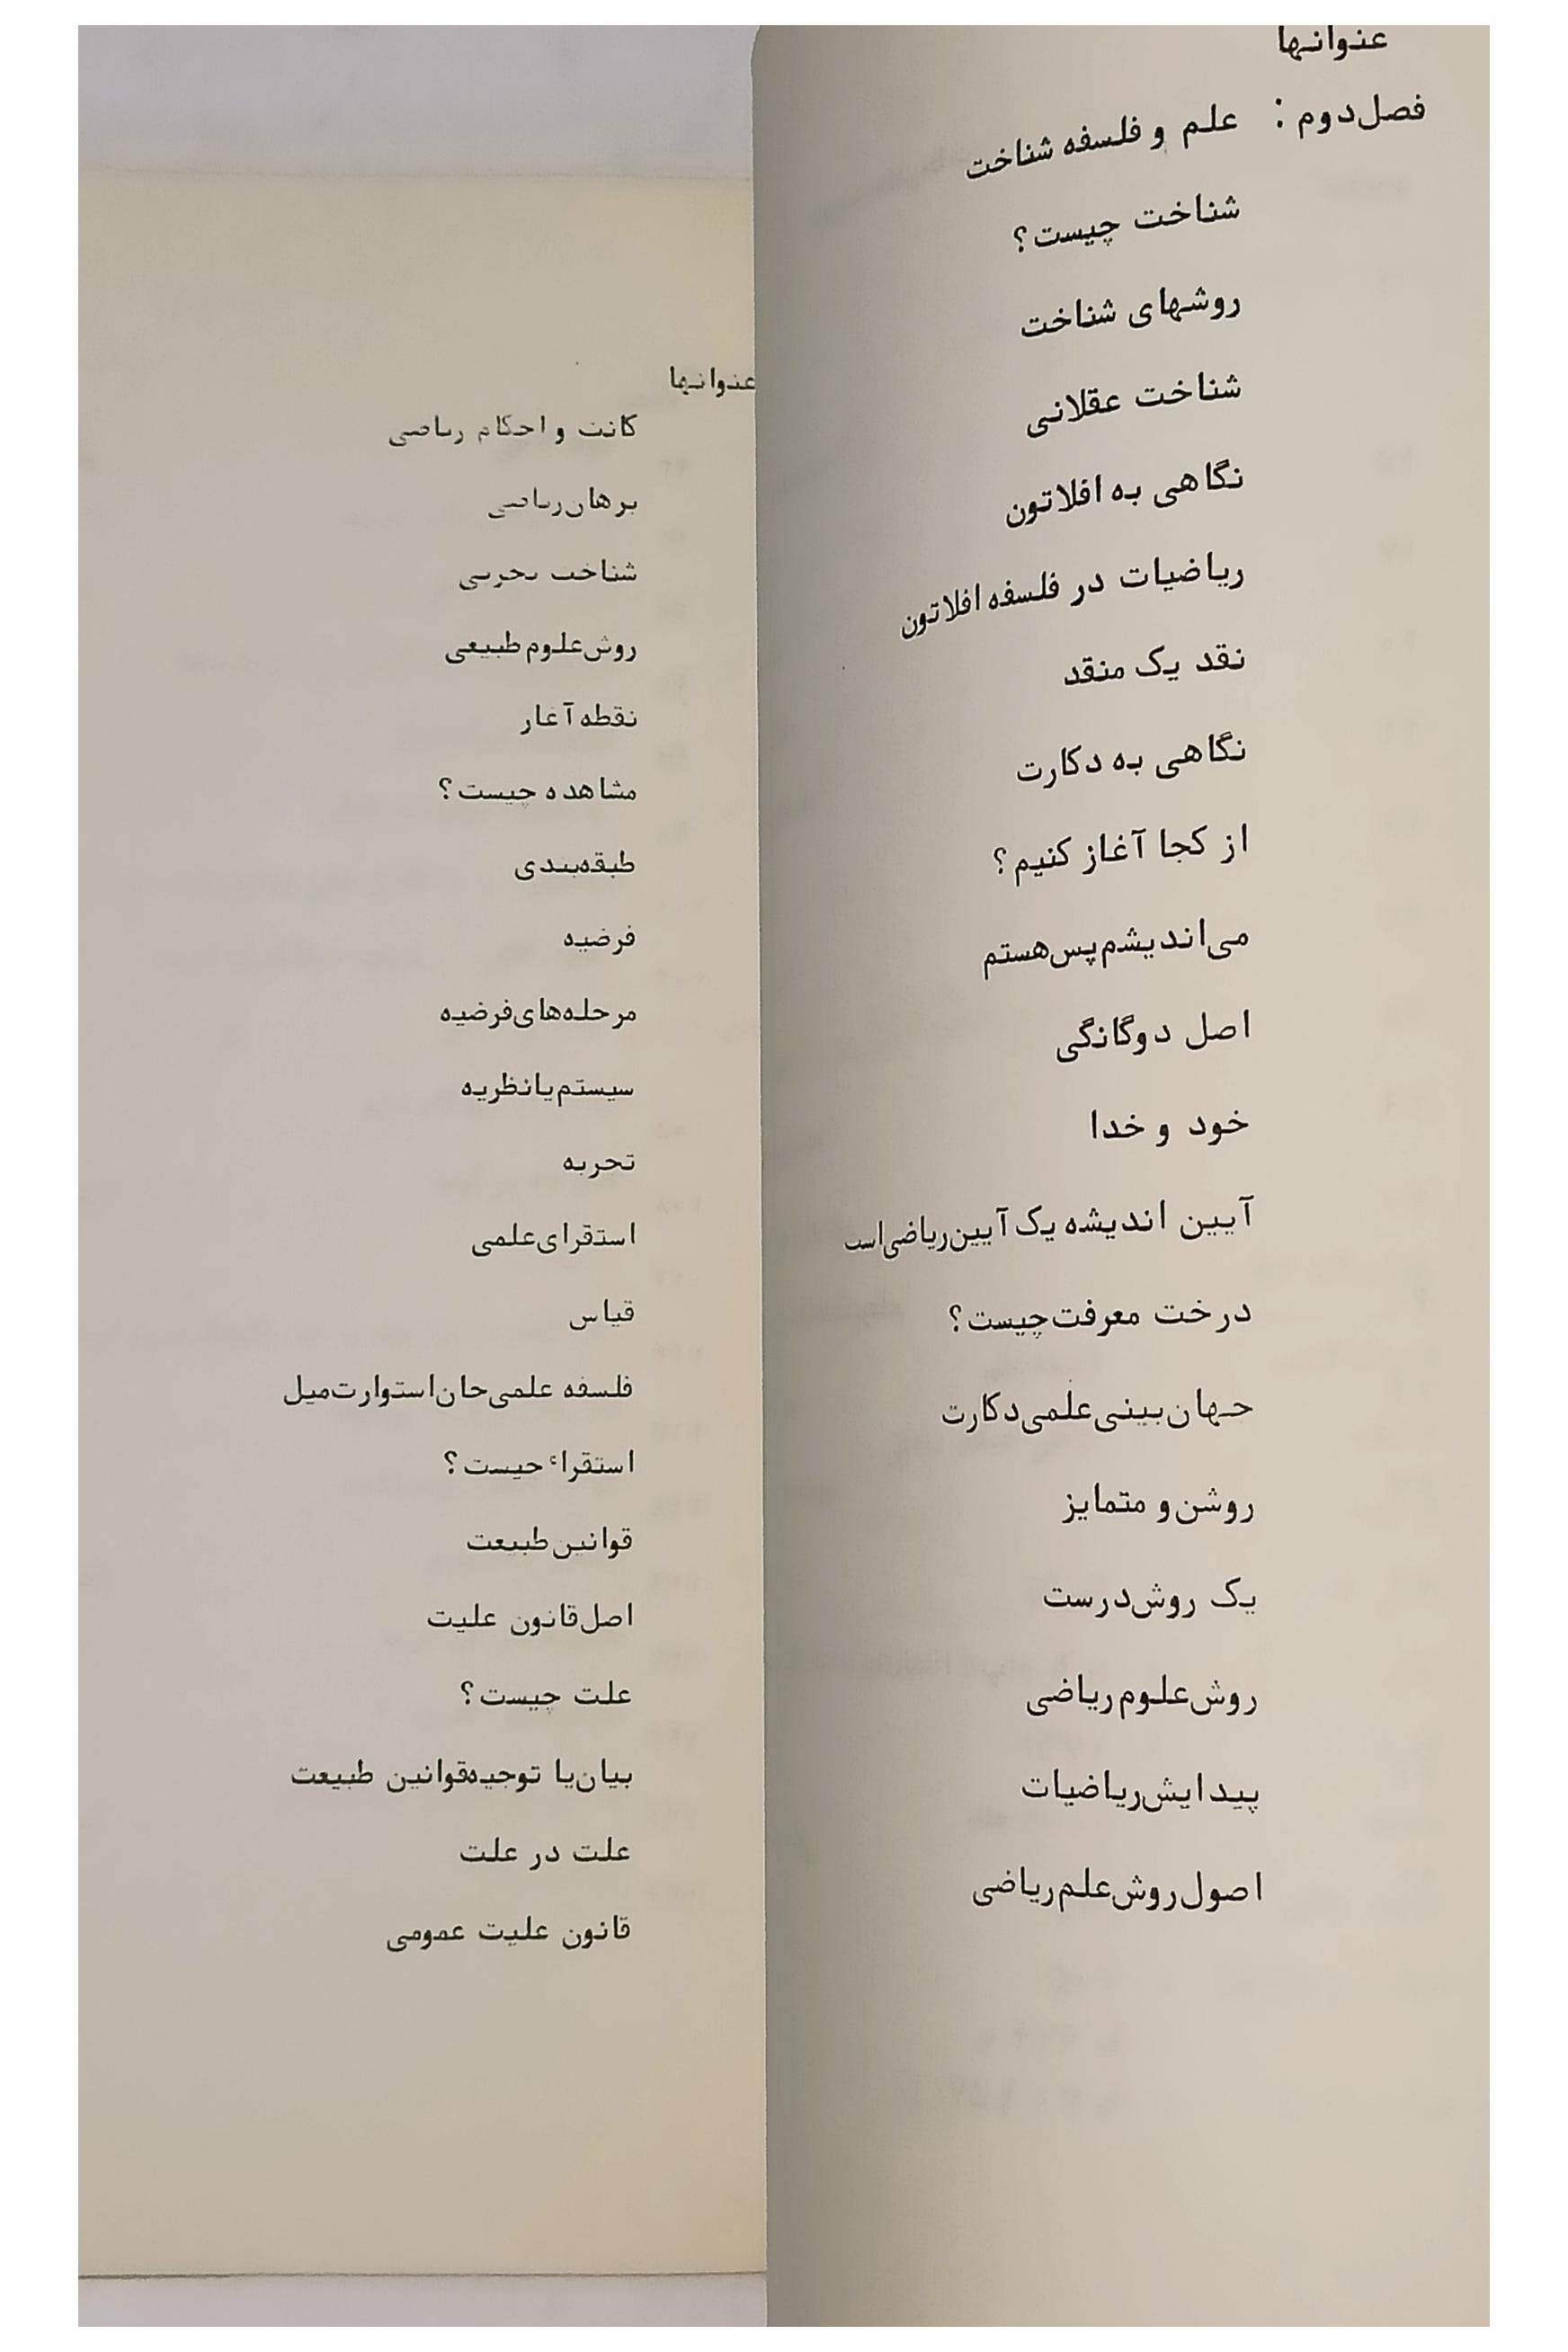 عنوانها
فصل دوم : علم و فلسفه شناخت
شناخت چیست؟
روشهای شناخت
شناخت عقلانی
نگاهی به افلاتون
ریاضیات در فلسفه افلاتون
نقد یک منقد
نگاهی به دکارت
از کجا آغاز کنیم؟
می‌اندیشم پس هستم
اصل دوگانگی
خود و خدا
آیین اندیشه یک آیین ریاضی است
درخت معرفت چیست؟
جهان‌بینی علمی دکارت
روشن و متمایز
یک روش درست
روش علوم ریاضی
پیدایش ریاضیات
اصول روش علم ریاضی
عنوانها
کانت و احکام ریاضی
برهان ریاضی
شناخت تجربی
روش علوم طبیعی
نقطه آغاز
مشاهده چیست؟
طبقه‌بندی
فرضیه
مرحله‌های فرضیه
سیستم یا نظریه
تجربه
استقرای علمی
قیاس
فلسفه علمی جان استوارت میل
استقراء چیست؟
قوانین طبیعت
اصل قانون علیت
علت چیست؟
بیان یا توجیه قوانین طبیعت
علت در علت
قانون علیت عمومی